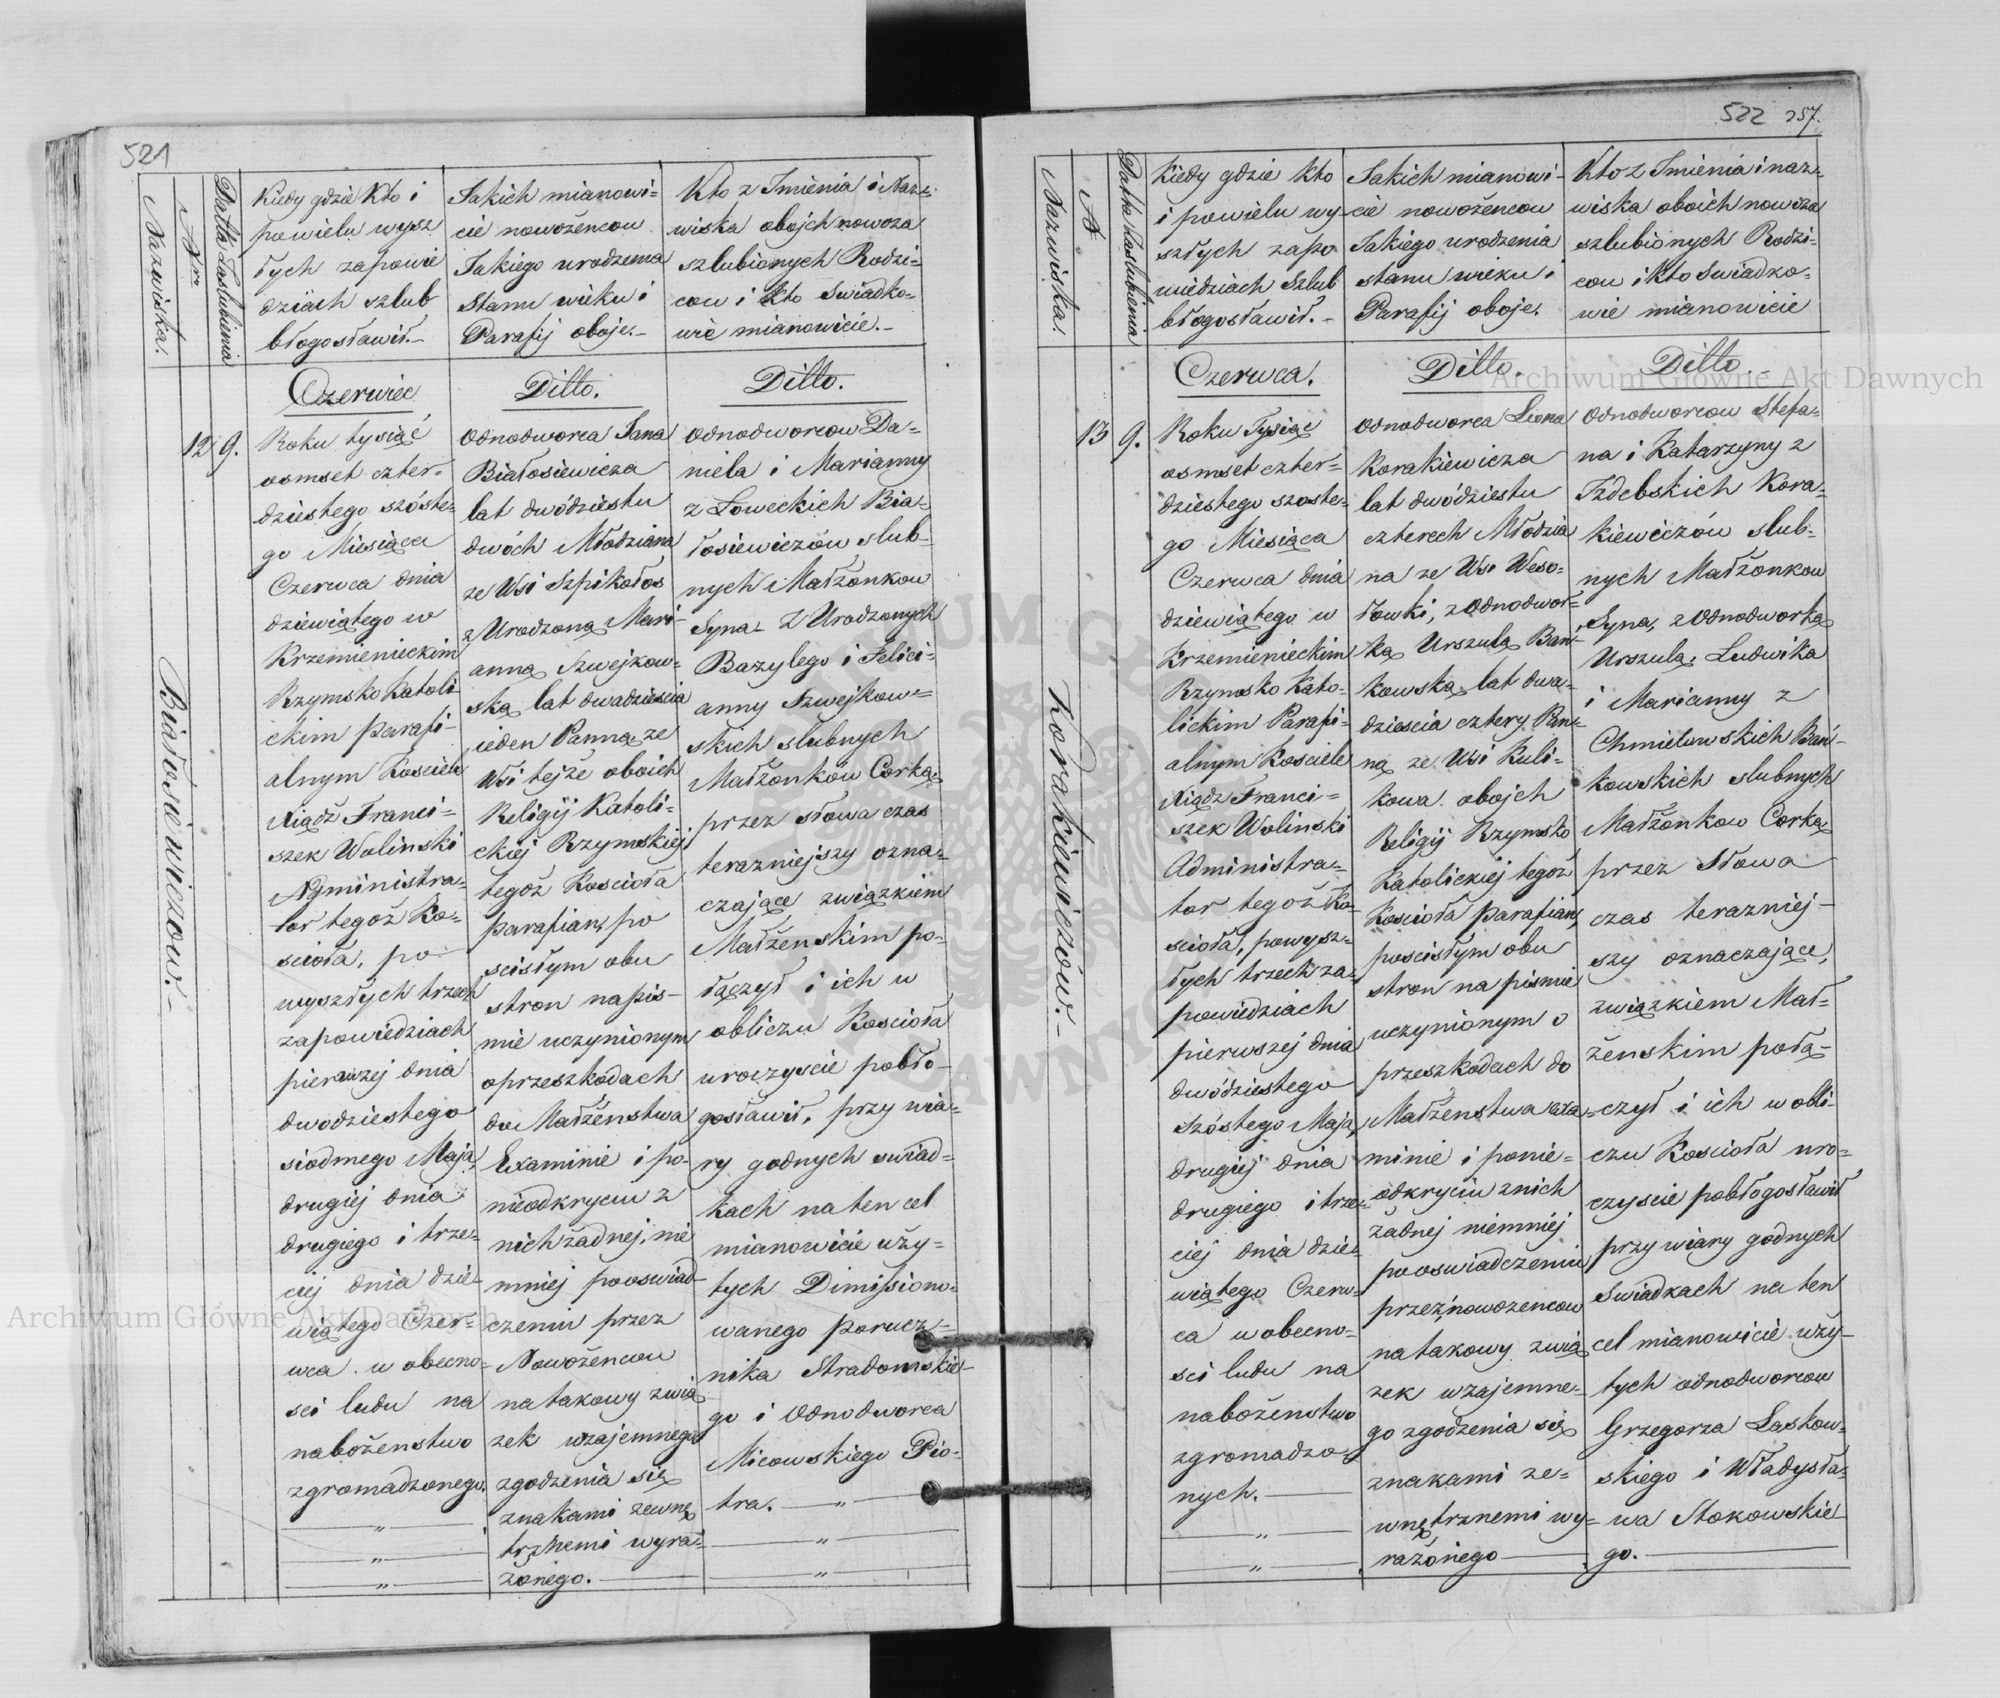 521
Nazwiska.
Nrr
Datta Zaslubienia
Kiedy gdzie Kto i
powielu wysz
łych zapowie
dziach szlub
błogosławił.-
Jakich mianowi-
cie nowożencow
Jakiego urodzenia
Stanu wieku i
Parafij oboje.-
Kto z Imienia i Naz-
wiska obojch nowoza
szlubionych Rodzi-
cow i kto Swiadko-
wie mianowicie.-
Czerwiec
Ditto.
Ditto.
Białosiewiczow.-
12
9.
Roku tysiąć
osmset czter-
dziestego szóste-
go Miesiąca
Czerwca dnia
dziewiątego w
Krzemienieckim
Rzymsko Katoli
ckim parafi-
alnym Kosciele
Xiądz Franci-
szek Wolinski
Administra-
tor tegoż Ko-
scioła, po
wyszłych trzech
zapowiedziach
pierwszej dnia
dwodziestego
siodmego Maja,
drugiej dnia
drugiego i trze-
ciej dnia dzie-
wiątego Czer-
wca w obecno-
sci ludu na
nabożenstwo
zgromadzonego.
Odnodworca Jana
Białosiewicza
lat dwódziestu
dwóch Młodziana
ze Wsi Szpikołos
z Urodzoną Mari-
anną Szwejkow-
ską lat dwadziescia
ieden Panną ze
Wsi tejże oboich
Religij Katoli-
ckiej Rzymskiej
tegoż Kościoła
parafian, po
scisłym obu
stron napis-
mie uczynionym
oprzeszkodach
do Małżenstwa
Examinie i po-
nieodkryciu z
nich żadnej, nie
mniej pooswiad-
czeniu przez
Nowożencow
na takowy zwią
zek wzajemnego
zgodzenia się
znakami zewnę
trznemi wyra-
żonego.
Odnodworcow Da-
niela i Marianny
z Łoweckich Bia-
łosiewiczów slub-
nych Małżonkow
Syna- z Urodzonych
Bazylego i Felici-
anny Szwejkow-
skich slubnych
Małżonków Corką,
przez słowa czas
terazniejszy ozna-
czające związkiem
Małżenskim po-
łączył i ich w
obliczu Kościoła
uroczyscie pobło-
gosławił, przy wia-
ry godnych swiad-
kach na ten cel
mianowicie uży-
tych Dimissiono-
wanego porucz-
nika Stradomskie-
go i Odnodworca
Micowskiego Pio-
tra.
522 257.
Nazwiska.
N
Datta Zaslubienia
Kiedy gdzie kto
i powielu wy-
szłych zapo
wiedziach Szlub
błogosławił.-
Jakich mianowi-
cie nowożencow
Jakiego urodzenia
stanu wieku i
Parafij oboje.
Kto z Imienia i naz-
wiska oboich nowoza
szlubionych Rodzi-
cow i kto Swiadko-
wie mianowicie
Czerwca.
Ditto.
Ditto.
Korakiewiczów.-
13
9.
Roku Tysiąc
osmset czter-
dziestego szoste-
go Miesiąca
Czerwca dnia
dziewiątego w
Krzemienieckim
Rzymsko Kato-
lickim Parafi-
alnym Kosciele
Xiądz Franci-
szek Wolinski
Administra-
tor tegoż Ko-
scioła, powysz-
łych trzech za-
powiedziach
pierwszej dnia
dwódziestego
szóstego Maja,
drugiej dnia
drugiego i trze-
ciej dnia dzie-
wiątego Czerw-
ca w obecno-
sci ludu na
nabożenstwo
zgromadzo-
nych.
Odnodworca Leona
Korakiewicza
lat dwódziestu
czterech Młodzia
na ze Wsi Weso-
łowki, z Odnodwor-
ką Urszulą Ban-
kowską lat dwa-
dziescia cztery Pan-
ną ze Wsi Kuli-
kowa obojch
Religij Rzymsko
Katolickiej tegoż
Kościoła parafian,
poscisłym obu
stron na pismie
uczynionym o
przeszkodach do
Małżenstwa Exa-
minie i ponie-
odkryciu z nich
żadnej niemniej
pooswiadczeniu
przez nowozencow
na takowy zwią
zek wzajemne-
go zgodzenia się
znakami ze-
wnętrznemi wy-
rażonego
Odnodworcow Stefa-
na i Katarzyny z
Izdebskich Kora-
kiewiczów slub-
nych Małżonkow
Syna, z Odnodworką
Urszulą, Ludwika
i Marianny z
Chmielewskich Bań-
kowskich slubnych
Małżonkow Corką
przez Słowa
czas terazniej-
szy oznaczające,
związkiem Mał-
żenskim połą-
czył i ich w obli-
czu Kościoła uro-
czyscie pobłogosławił
przy wiary godnych
Swiadkach na ten
cel mianowicie uży-
tych odnodworcow
Grzegorza Laskow-
skiego i Władysła-
wa Stokowskie
go.
Archiwum Główne Akt Dawnych
Archiwum Główne Akt Dawnych